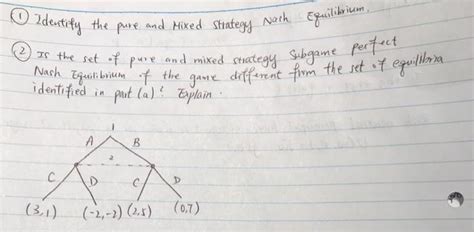 ① Identify the pure and Mixed Strategy Nash Equilibrium.
② Is the set of pure and mixed strategy Subgame perfect
Nash Equilibrium of the game different from the set of equilibria
identified in part (a)? Explain.
1
A B
2
C D C D
(3,1) (-2,-2) (2,5) (0,7)